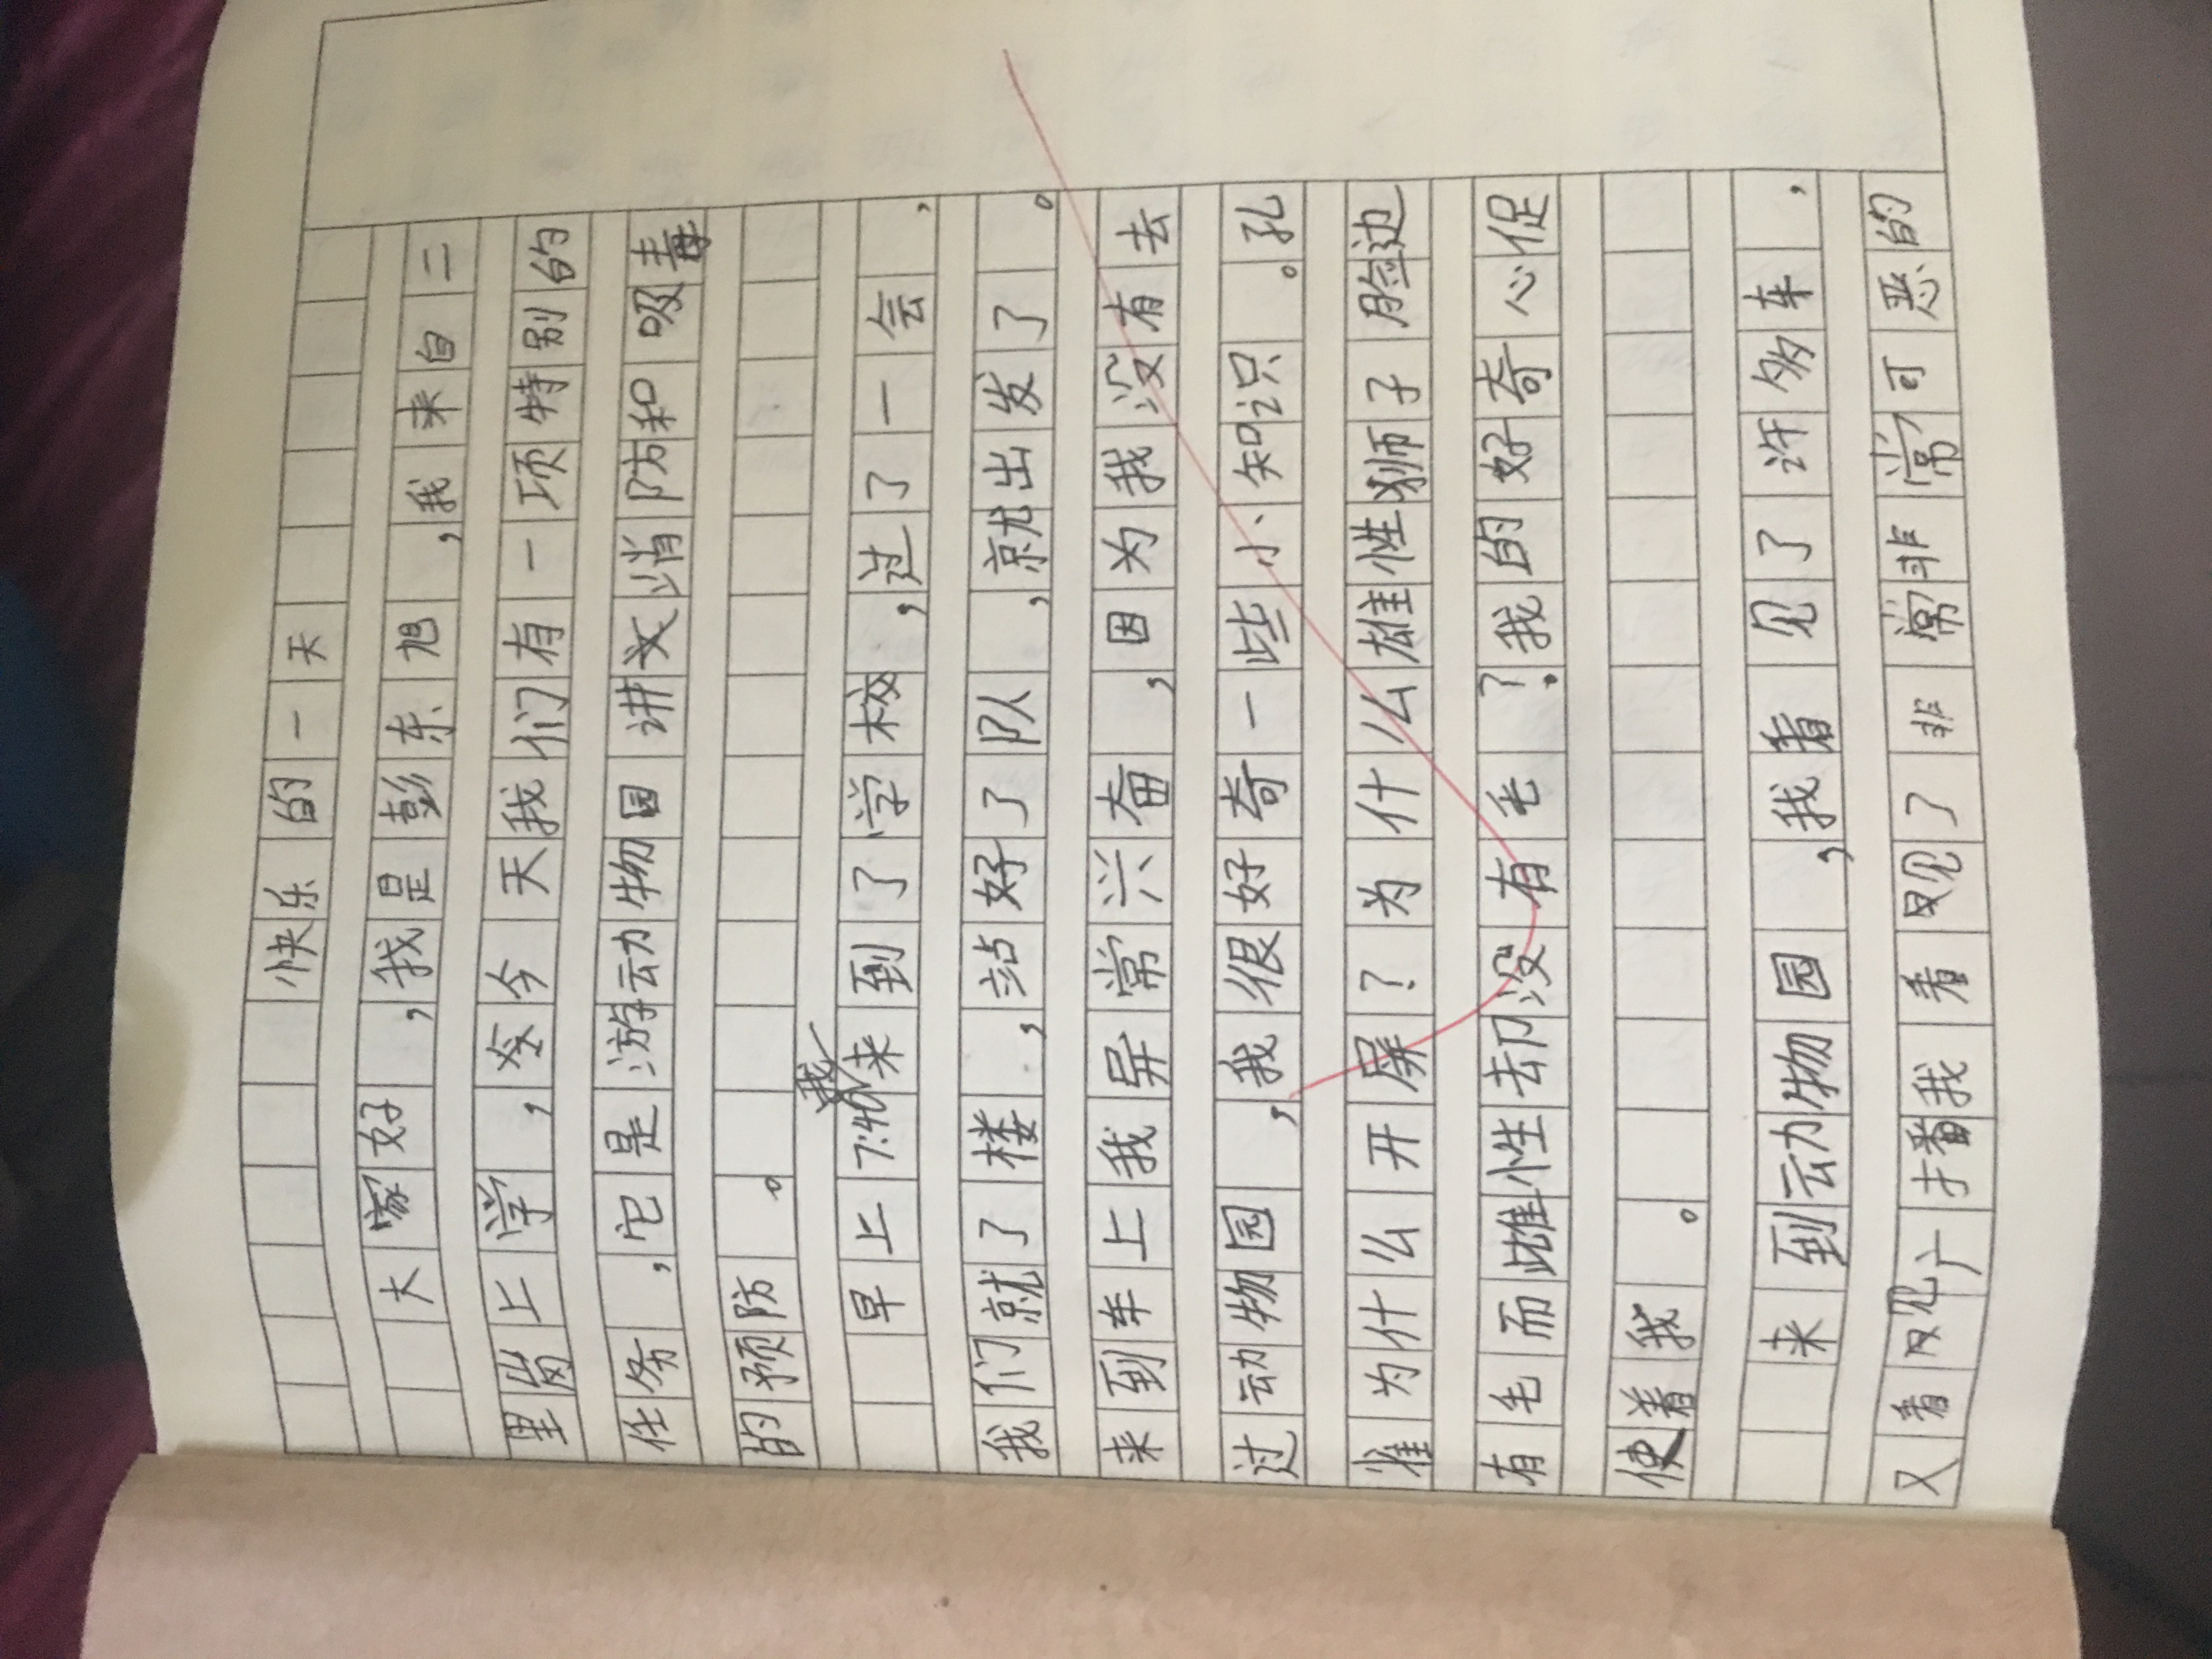 快乐的一天
大家好，我是彭东旭，我来自二
里岗上学，今天我们有一项特别的
任务，它是游动物园讲消防和吸毒
的预防。
早上7:40我来到了学校，过了一会，
我们就了楼，站好了队，就出发了。
来到车上我异常兴奋，因为我没有去
过动物园，我很好奇一些小知识。孔
雀为什么开屏？为什么雄性狮子脸边
有毛而雌性却没有毛？我的好奇心促
使着我。
来到动物园，我看见了许多车，
又看见广播我看见了非常非常可恶的